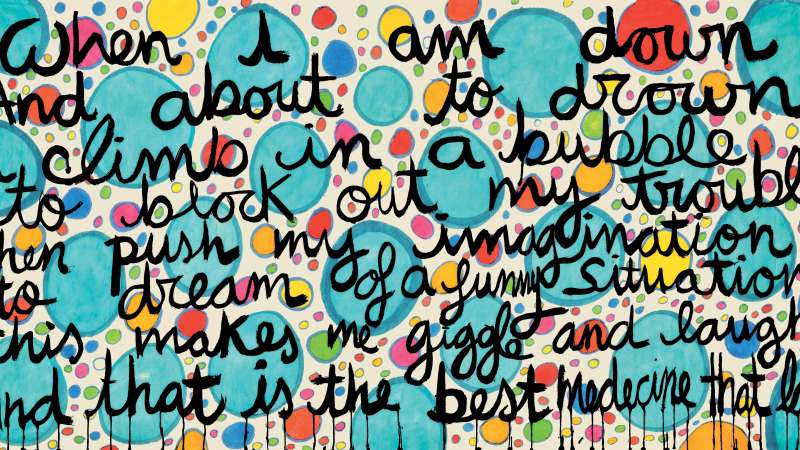 When I am down
And about to drown
climb in a bubble
to block out my troubl
hen push my imagination
to dream of a funny situation
this makes me giggle and laugh
and that is the best medecine that